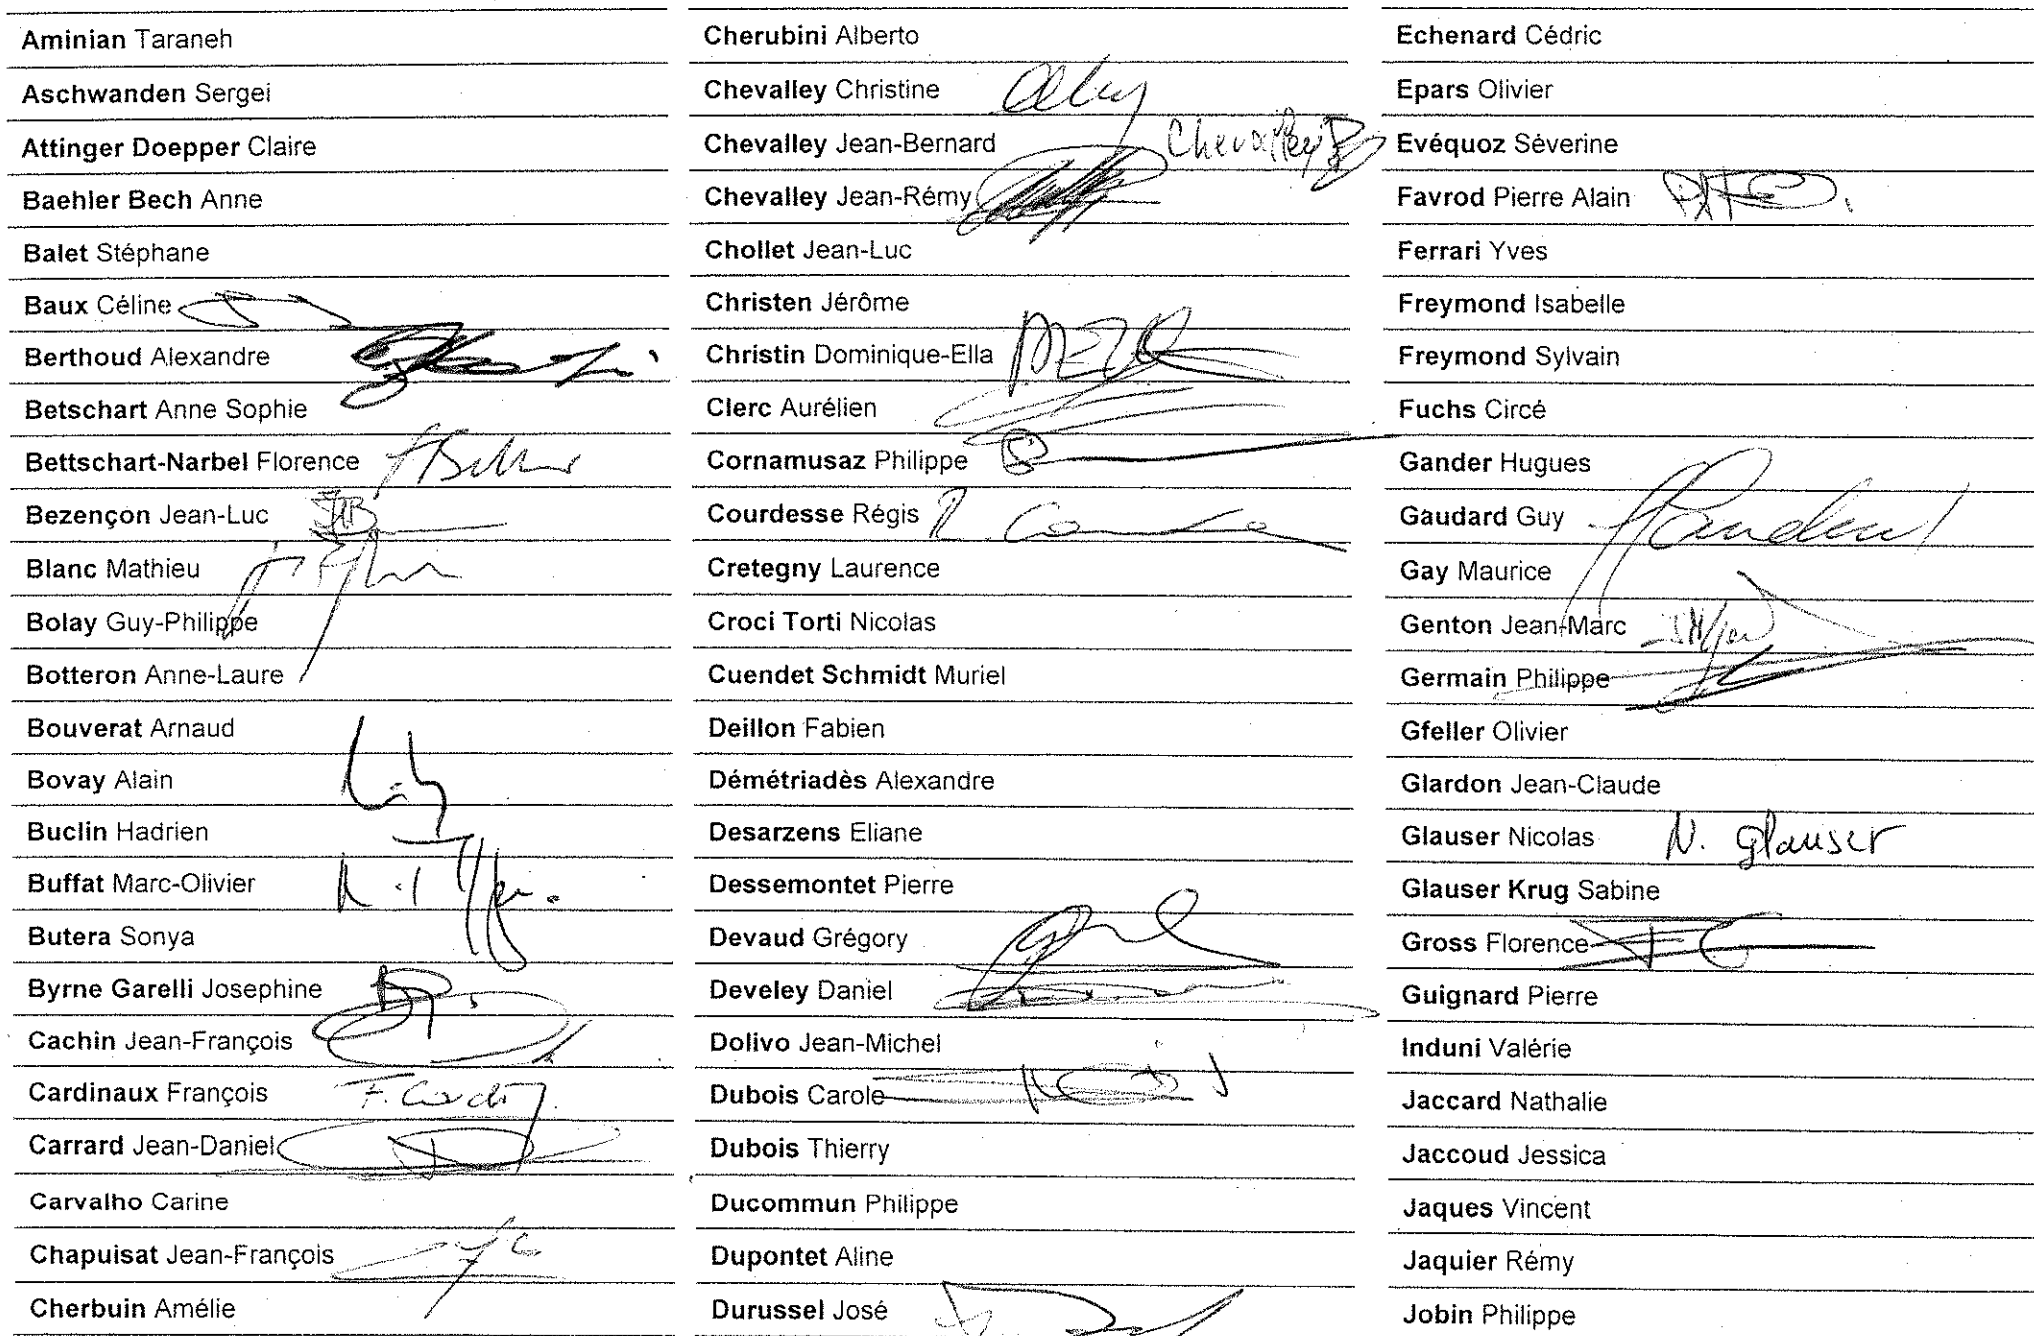 Aminian Taraneh
Aschwanden Sergei
Attinger Doepper Claire
Baehler Bech Anne
Balet Stéphane
Baux Céline
Berthoud Alexandre
Betschart Anne Sophie
Bettschart-Narbel Florence
Bezençon Jean-Luc
Blanc Mathieu
Bolay Guy-Philippe
Botteron Anne-Laure
Bouverat Arnaud
Bovay Alain
Buclin Hadrien
Buffat Marc-Olivier
Butera Sonya
Byrne Garelli Josephine
Cachin Jean-François
Cardinaux François
Carrard Jean-Daniel
Carvalho Carine
Chapuisat Jean-François
Cherbuin Amélie
Cherubini Alberto
Chevalley Christine
Chevalley Jean-Bernard Chevalley
Chevalley Jean-Rémy
Chollet Jean-Luc
Christen Jérôme
Christin Dominique-Ella
Clerc Aurélien
Cornamusaz Philippe
Courdesse Régis
Cretegny Laurence
Croci Torti Nicolas
Cuendet Schmidt Muriel
Deillon Fabien
Démétriadès Alexandre
Desarzens Eliane
Dessemontet Pierre
Devaud Grégory
Develey Daniel
Dolivo Jean-Michel
Dubois Carole
Dubois Thierry
Ducommun Philippe
Dupontet Aline
Durussel José
Echenard Cédric
Epars Olivier
Evéquoz Séverine
Favrod Pierre Alain
Ferrari Yves
Freymond Isabelle
Freymond Sylvain
Fuchs Circé
Gander Hugues
Gaudard Guy
Gay Maurice
Genton Jean-Marc
Germain Philippe
Gfeller Olivier
Glardon Jean-Claude
Glauser Nicolas N. Glauser
Glauser Krug Sabine
Gross Florence
Guignard Pierre
Induni Valérie
Jaccard Nathalie
Jaccoud Jessica
Jaques Vincent
Jaquier Rémy
Jobin Philippe